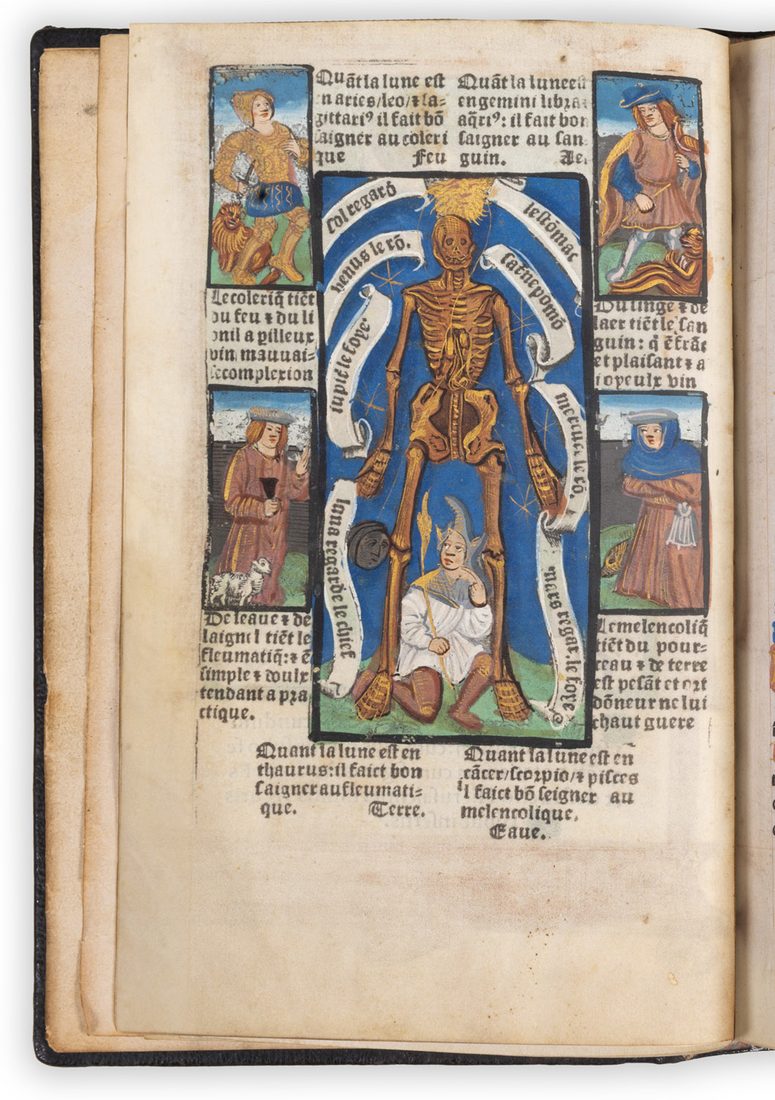 Quãt la lune est
en aries/leo/⁊ sa-
gittariꝰ il fait bõ
saigner au coleri
que Feu
Quãt la lune est
en gemini libra
aq̃riꝰ: il fait bon
saigner au san
guin. Aer
sol regard
lestomac
venus le rõ.
saturne pomõ
iupit le foye.
mercure le rõ.
luna regarde le chief
mars regar. le foye
Le coleriq̃ tiẽt
du feu ⁊ du li
on il a perilleux
vin mauuai-
se complexion
Du singe ⁊ de
laer tiẽt le san
guin: q̃ ẽ frãc
et plaisant ⁊ a
ioyeulx vin
De leaue ⁊ de
laignel tiẽt le
fleumatiq̃: ⁊ ẽ
simple ⁊ doulx
tendant a pra
ctique.
Le melencoliq̃
tiẽt du pour-
ceau ⁊ de terre
est pesãt et ort
dõneur ne lui
chaut guere
Quant la lune est en
thaurus: il faict bon
saigner au fleumati-
que. Terre.
Quant la lune est en
cãcer/scorpio/⁊ pisces
il faict bõ seigner au
melencolique.
Eaue.